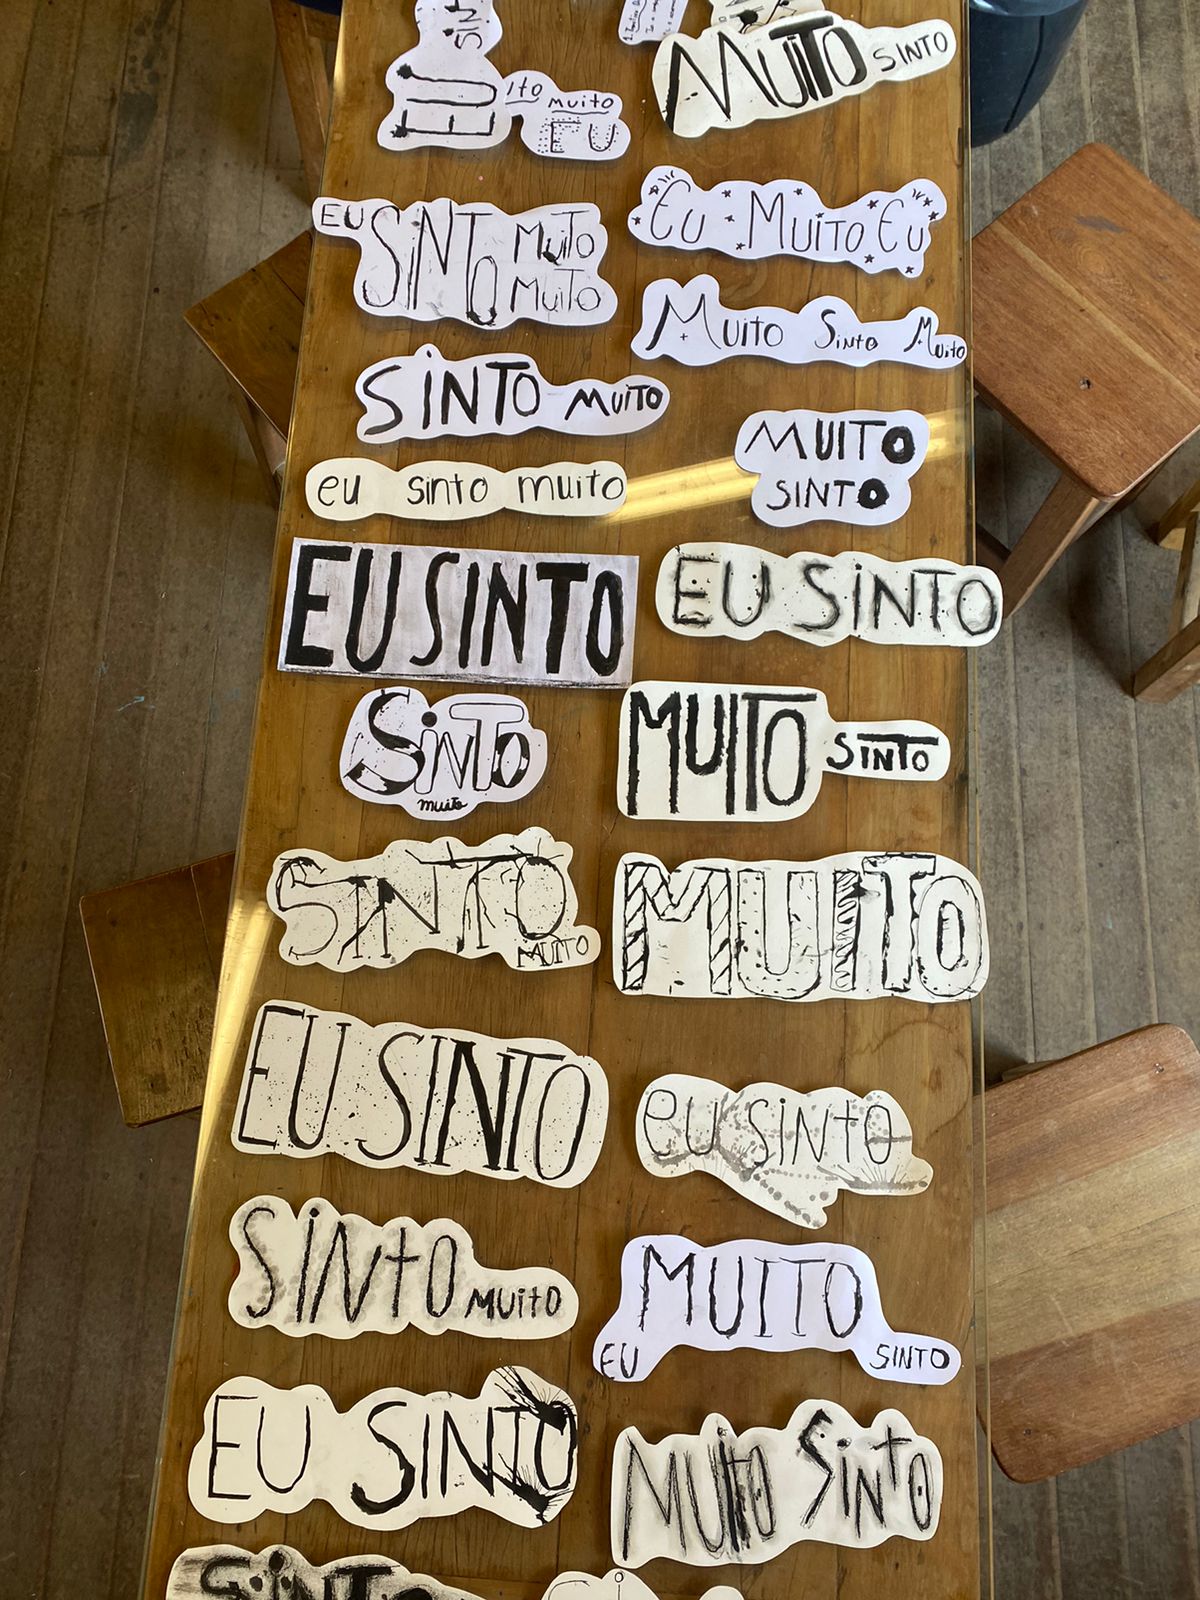 SiN
EU
ito
muito
EU
MUiTO SINTO
EU SiNTO MuiTo
MuiTo
Eu Muito Eu
Muito Sinto Muito
SiNTO MUITO
MUITO
SINTO
eu sinto muito
EU SINTO
EU SiNTO
SiNTO
muito
MUITO SINTO
SINTO
MUITO
MUiTO
EU SINTO
eu sinto
SiNtO MUitO
MUITO
EU SINTO
EU SINTO
MUito Sinto
SiNTO